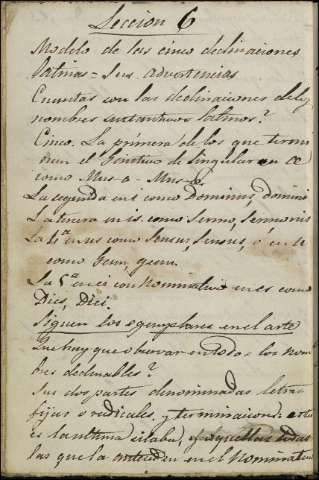 Leccion 6
Modelo de las cinco declinaciones
latinas = Sus advertencias
Cuantas son las declinaciones de los
nombres sustantivos latinos?
Cinco. La primera de los que termi
nan el Genitivo de singular en æ
como Mus-a - Mus-æ.
La segunda en i como Dominus, domini
La tercera en is. como Sermo, sermonis
La 4ª en us como Sensus, sensus, ó en u
como genu, genu.
La 5ª en ei con Nominativo en es como
Dies, Diei.
Siguen los egemplares en el arte
Que hay que observar en todos los nom
bres declinables?
Sus dos partes denominadas letras
fijas o radicales, y terminacion: esta
es la ultima silaba, y aquellas todas
las que la anteceden en el Nominativo